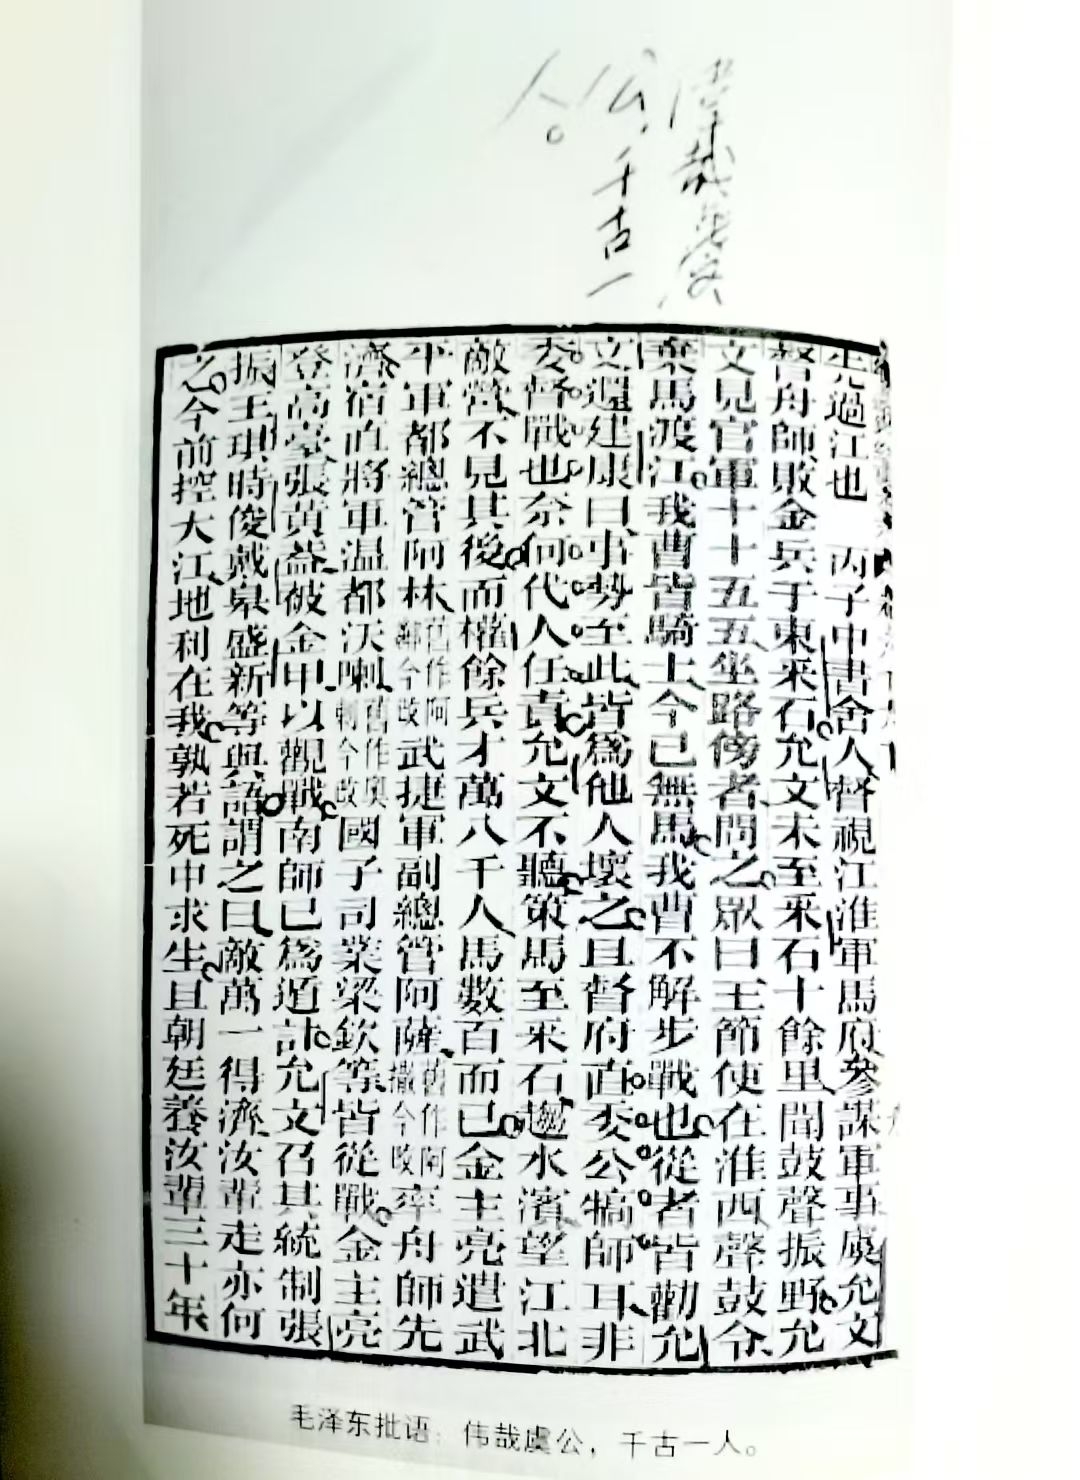 偉哉虞
公,千古一
人。
先過江也　丙子中書舍人督視江淮軍馬府參謀軍事虞允文
督舟師敗金兵于東采石允文未至采石十餘里聞鼓聲振野允
文見官軍十十五五坐路傍者問之眾曰王節使在淮西聲鼓令
棄馬渡江我曹皆騎士今已無馬我曹不解步戰也從者皆勸允
文還建康曰事勢至此皆爲他人壞之且督府直委公犒師耳非
委督戰也奈何代人任責允文不聽策馬至采石趨水濱望江北
敵營不見其後而權餘兵才萬八千人馬數百而已金主亮遣武
平軍都總管阿林舊作阿鄰今改武捷軍副總管阿薩舊作阿撒今改率舟師先
濟宿直將軍温都沃喇舊作奧剌今改國子司業梁欽等皆從戰金主亮
登高臺張黃蓋被金甲以觀戰南師已爲遁計允文召其統制張
振王琪時俊戴皋盛新等與語謂之曰敵萬一得濟汝輩走亦何
之今前控大江地利在我孰若死中求生且朝廷養汝輩三十年
毛泽东批语：伟哉虞公，千古一人。